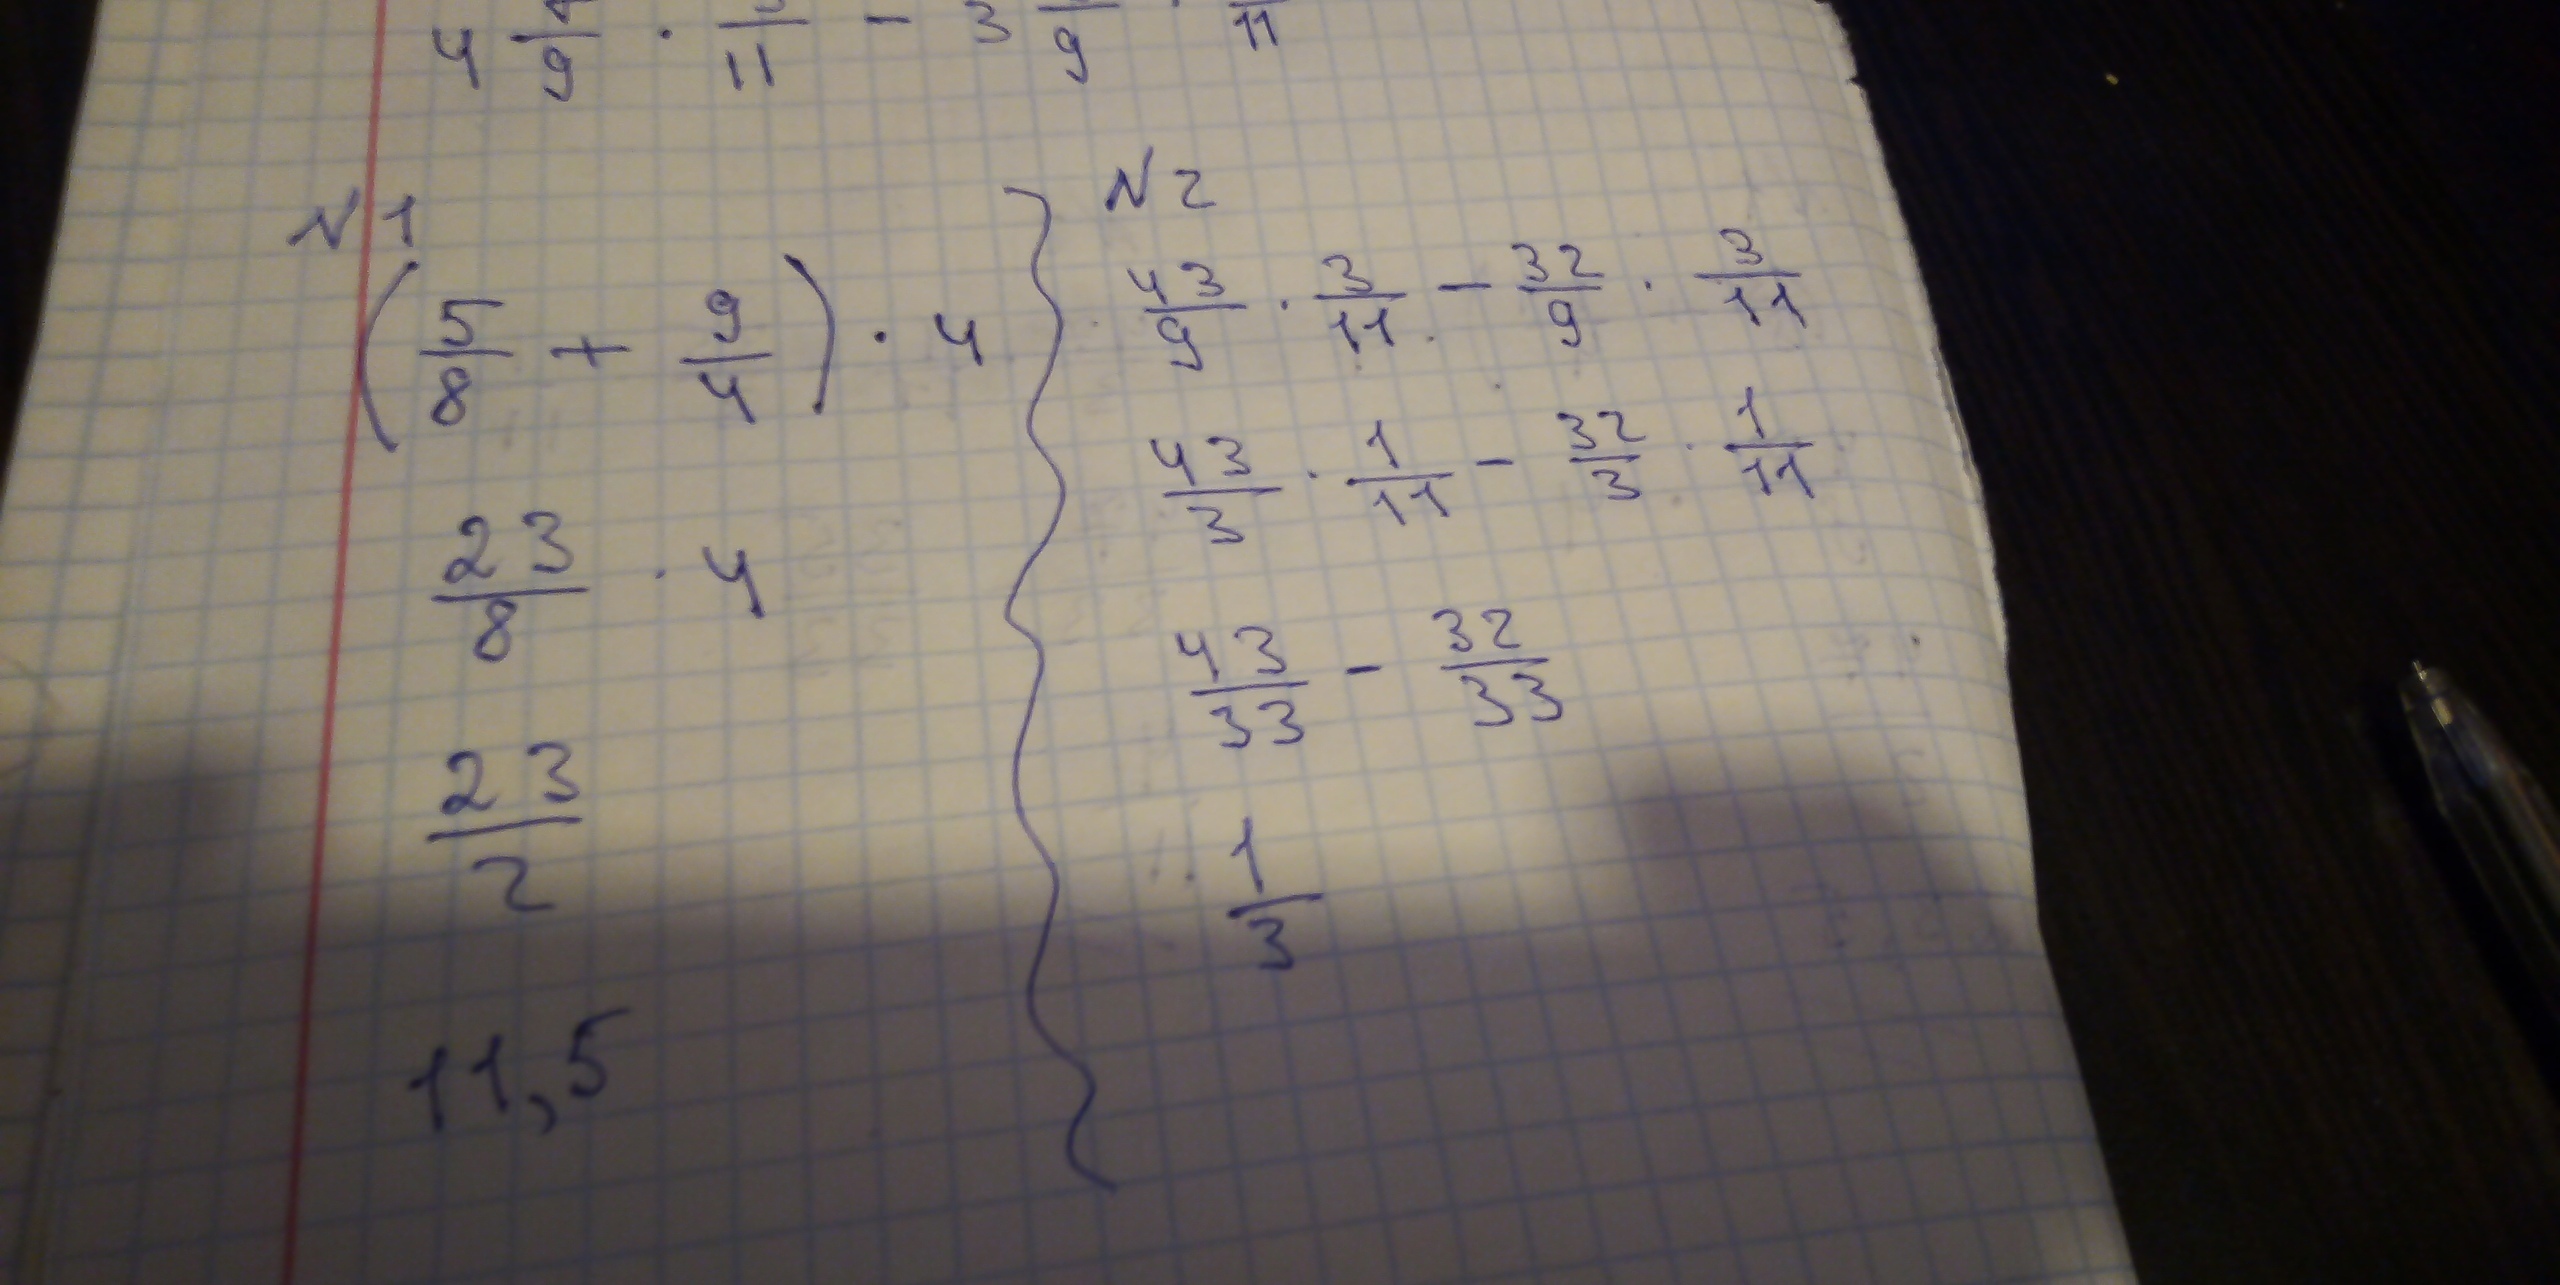 4 /9 · /11 - 3 /9 · /11
N1
(5/8 + 9/4) · 4
23/8 · 4
23/2
11,5
N2
43/9 · 3/11 - 32/9 · 3/11
43/3 · 1/11 - 32/3 · 1/11
43/33 - 32/33
1/3